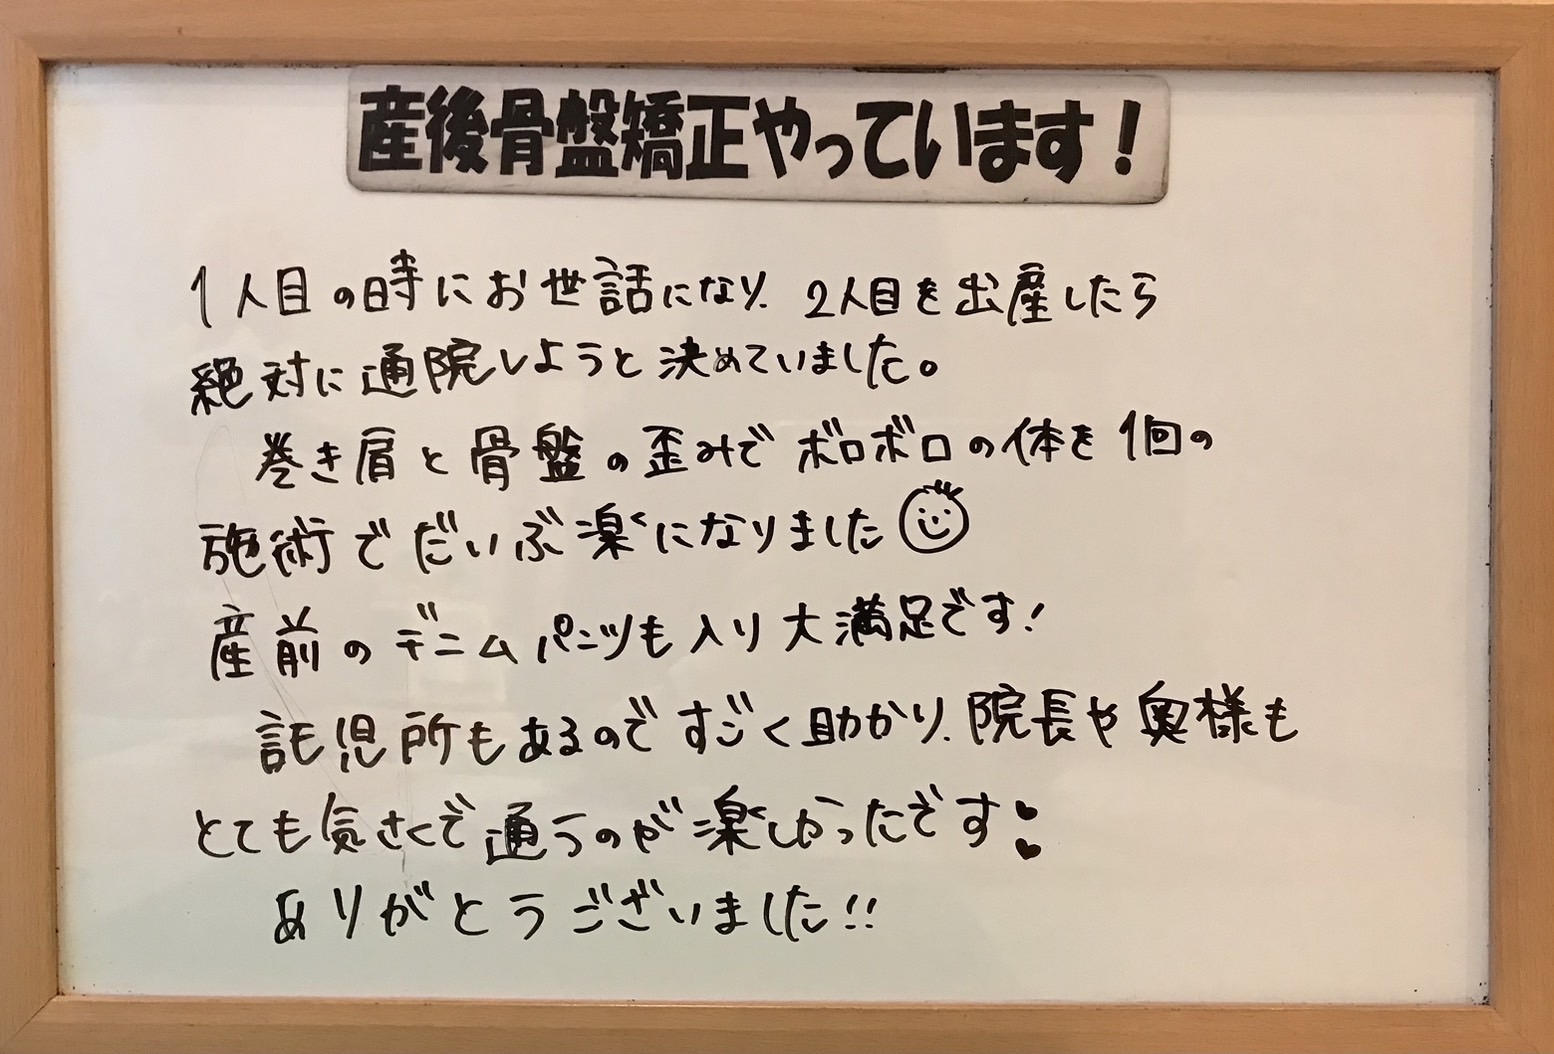 産後骨盤矯正やっています!
1人目の時にお世話になり、2人目を出産したら
絶対に通院しようと決めていました。
巻き肩と骨盤の歪みでボロボロの体を1回の
施術でだいぶ楽になりました
産前のデニムパンツも入り大満足です!
託児所もあるのですごく助かり、院長や奥様も
とても気さくで通うのが楽しかったです
ありがとうございました!!